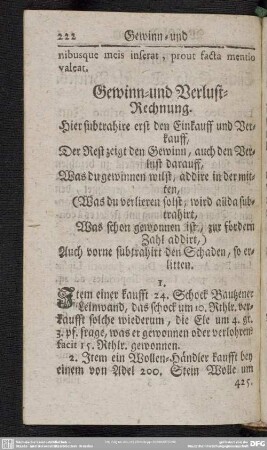 222 Gewinn-und
nibusque meis inserat, prout facta mentio
valeat.
Gewinn-und Verlust-
Rechnung.
Hier subtrahire erst den Einkauff und Ver-
kauff,
Der Rest zeigt den Gewinn, auch den Ver-
lust darauff,
Was du gewinnen wilst, addire in der mit-
ten,
(Was du verlieren solst, wird allda sub-
trahirt,
Was schon gewonnen ist, zur fördern
Zahl addirt,)
Auch vorne subtrahirt den Schaden, so er-
litten.
1.
Item einer kaufft 24. Schock Bautzener
Leinwand, das schock um 10. Rthlr. ver-
kaufft solche wiederum, die Ele um 4. gr.
3. pf. frage, was er gewonnen oder verlohren
facit 15. Rthlr. gewonnen.
2. Item ein Wollen-Händler kaufft bey
einem von Adel 200. Stein Wolle um
425.